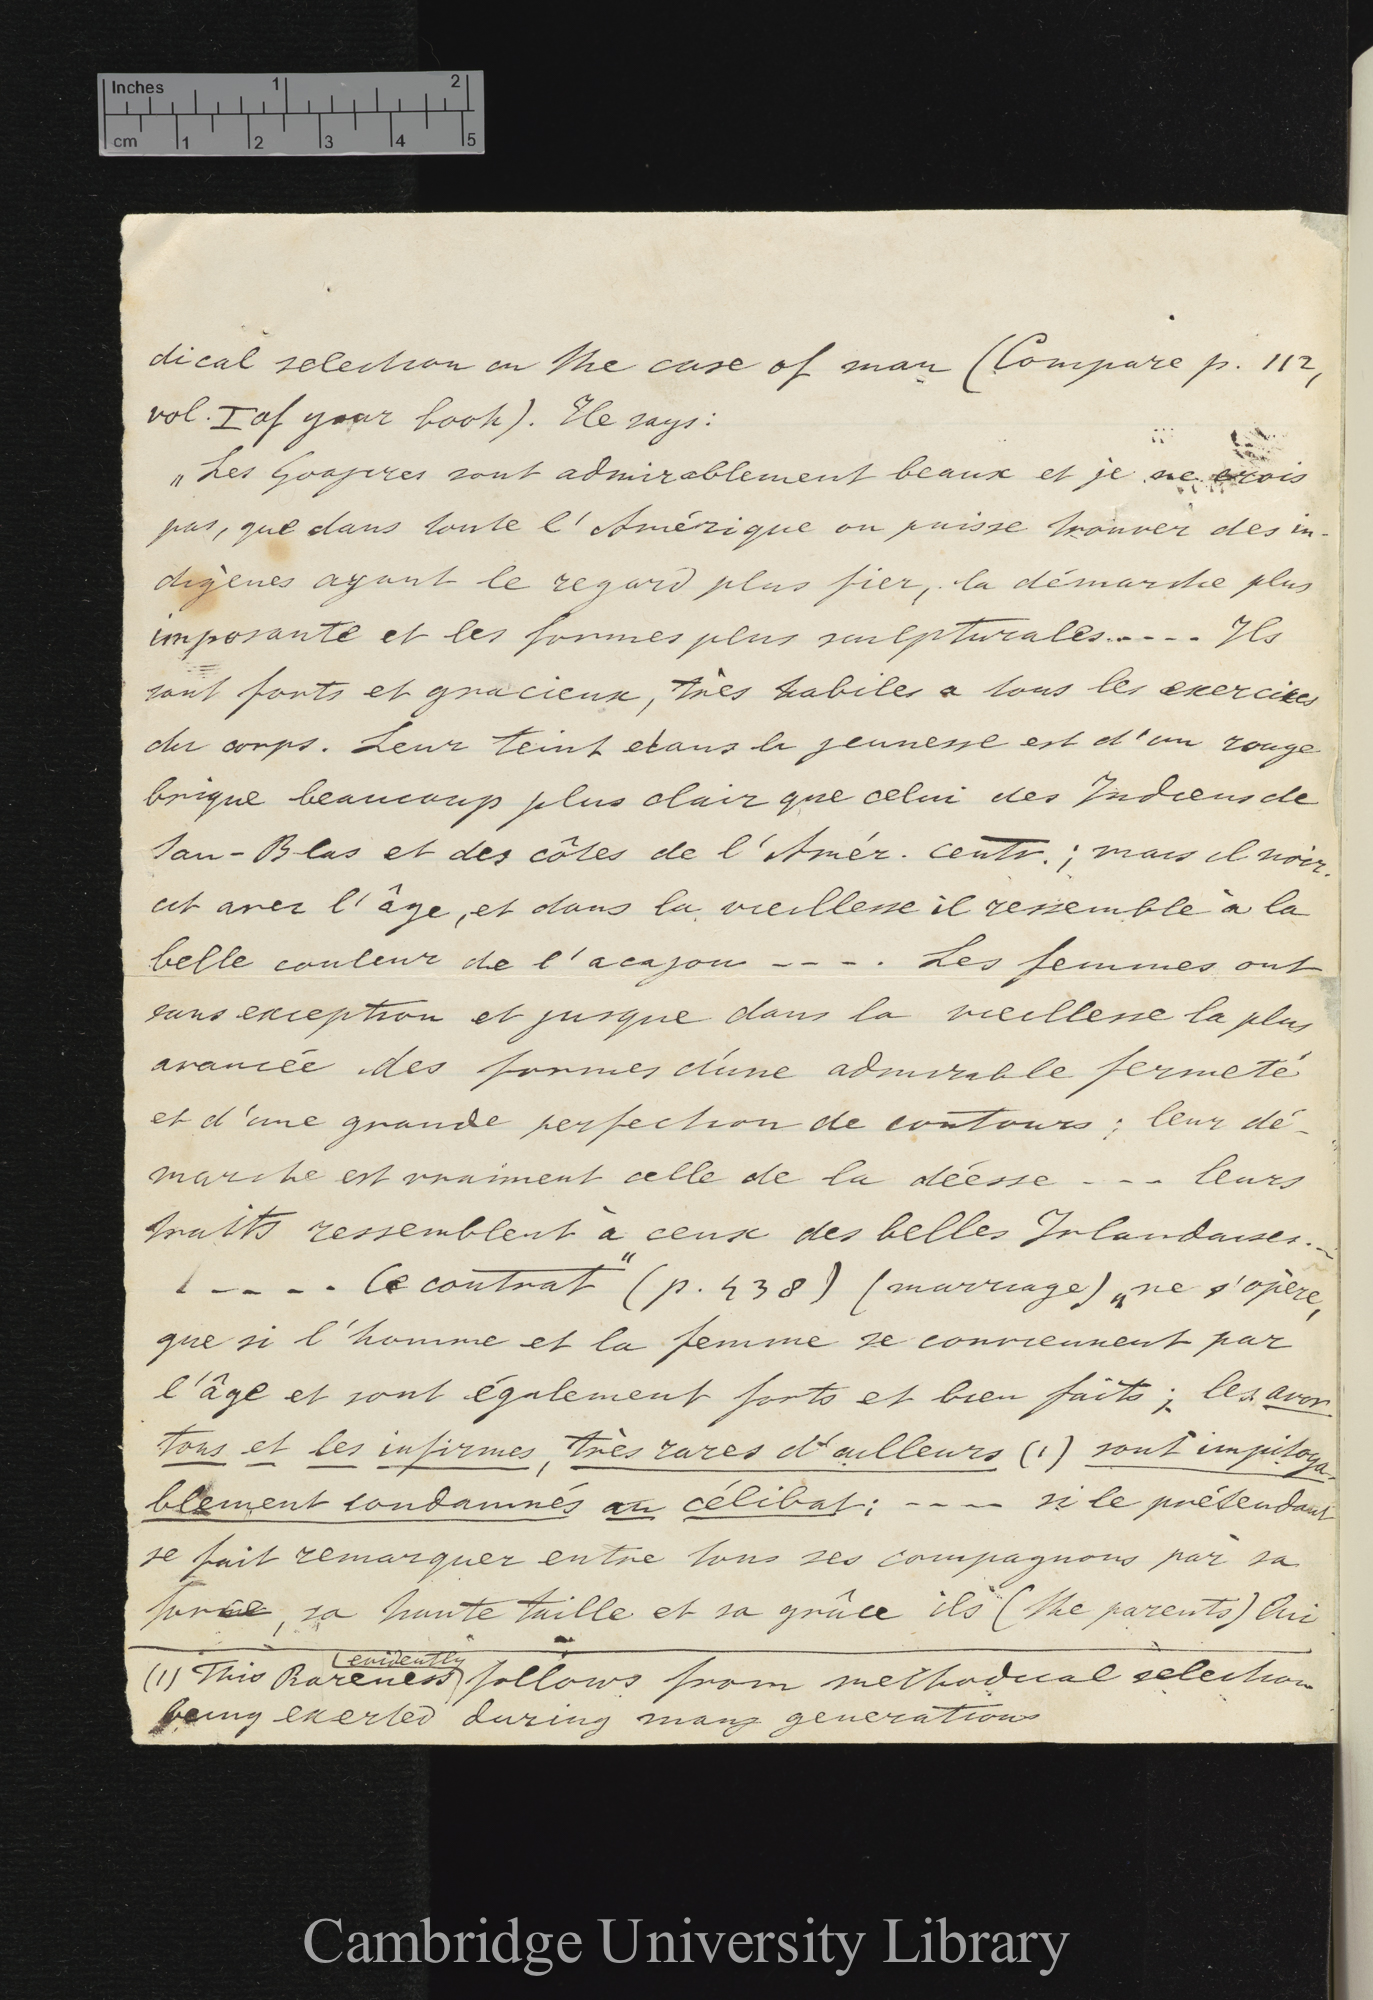 Inches 1 2
cm 1 2 3 4 5
dical selection in the case of man (Compare p. 112,
vol. I of your book). He says:
„Les Goajires sont admirablement beaux et je ne crois
pas, que dans toute l'Amérique on puisse trouver des in-
digènes ayant le regard plus fier, la démarche plus
imposante et les formes plus sculpturales..---- Ils
sont forts et gracieux, très habiles a tous les exercices
du corps. Leur teint dans la jeunesse est d'un rouge
brique beaucoup plus clair que celui des Indiens de
San-Blas et des côtes de l'Amér. centr.; mais il noir-
cit avec l'âge, et dans la vieillesse il ressemble à la
belle couleur de l'acajou ---. Les femmes ont
sans exception et jusque dans la vieillesse la plus
avancée des formes d'une admirable fermeté
et d'une grande perfection de contours; leur dé-
marche est vraiment celle de la déesse --- leurs
traits ressemblent à ceux des belles Irlandaises.--
---- Ce contrat" (p. 438) (marriage) „ne s'opère,
que si l'homme et la femme se conviennent par
l'âge et sont également forts et bien faits; les avor-
tons et les infirmes, très rares d'ailleurs (1) sont impitoya-
blement condamnés au célibat; ---- si le prétendant
se fait remarquer entre tous ses compagnons par sa
force, sa haute taille et sa grâce ils (the parents) lui
(1) This Rareness (evidently) follows from methodical selection
being exerted during many generations
Cambridge University Library